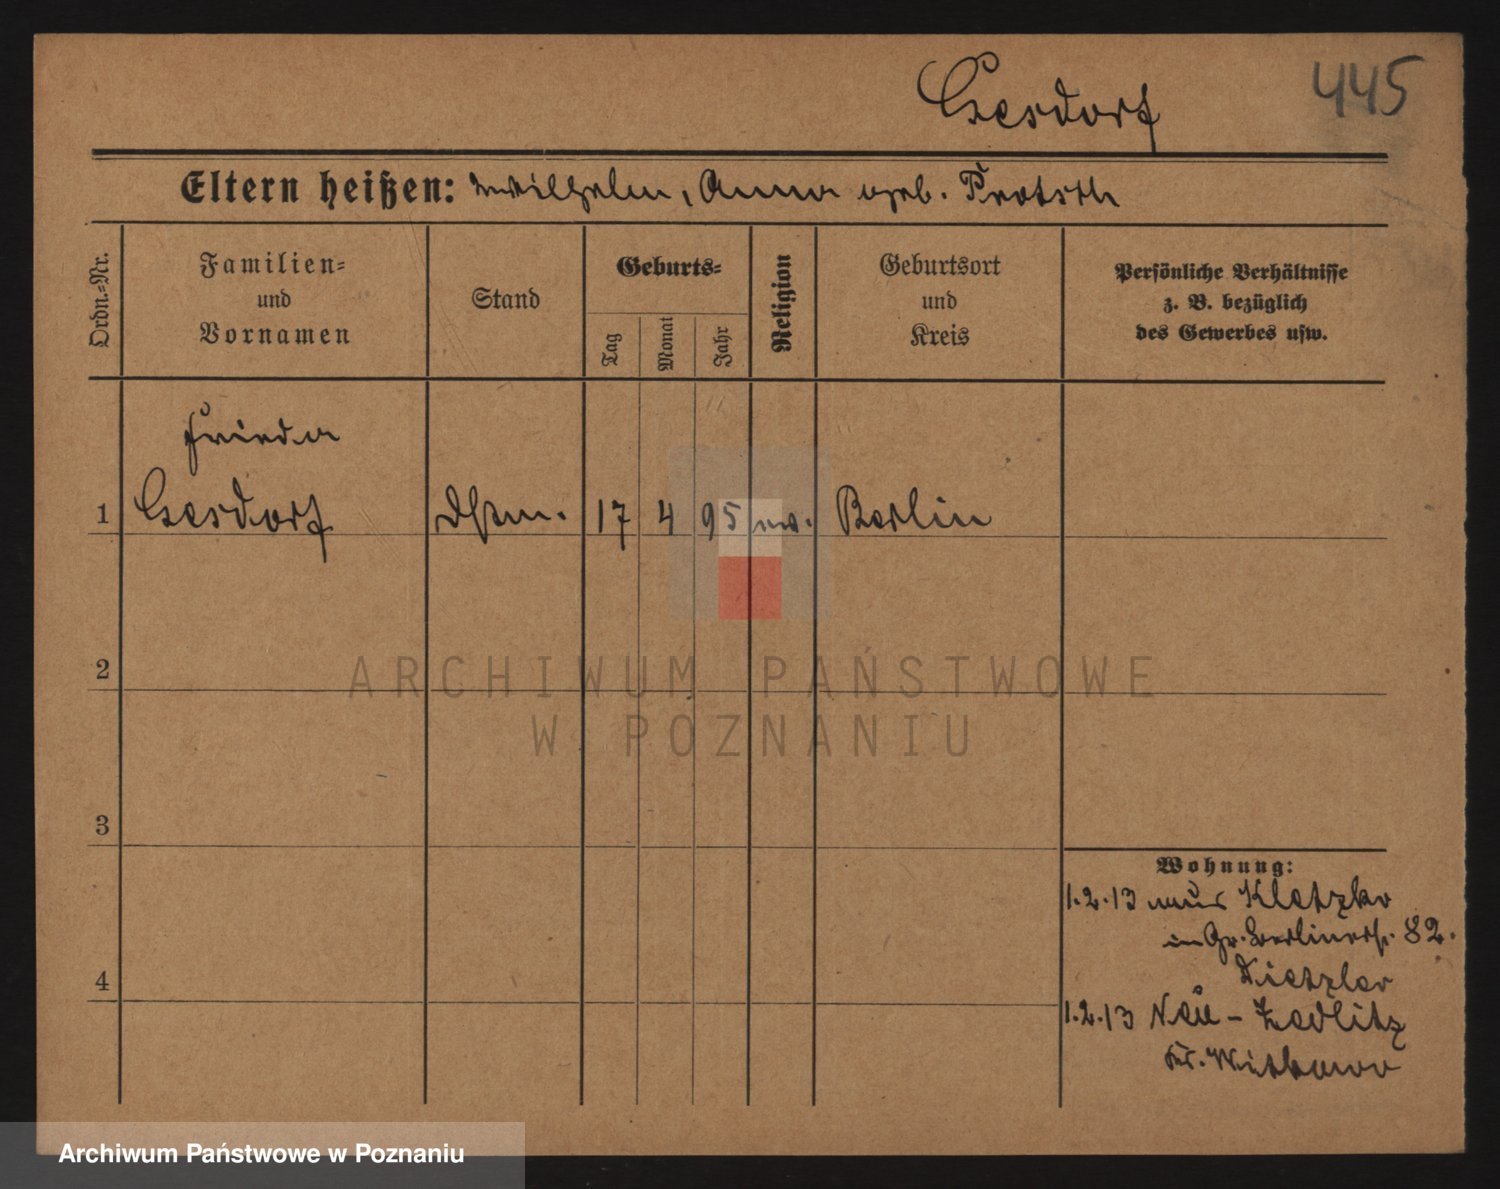 445
Gesdorf
Eltern heißen: Wilhelm, Anna geb. Protsch
Ordn.-Nr.
Familien-
und
Vornamen
Stand
Geburts-
Tag
Monat
Jahr
Religion
Geburtsort
und
Kreis
Persönliche Verhältnisse
z. B. bezüglich
des Gewerbes usw.
Frieda
1 Gesdorf 17 4 95 ev. Berlin
2
ARCHIWUM PAŃSTWOWE
W POZNANIU
3
Wohnung:
1.2.13 aus Kletzko
in Gr. Berlinerstr. 82.
4
1.2.13 Neu-Zedlitz
Kr. Witkowo
Archiwum Państwowe w Poznaniu